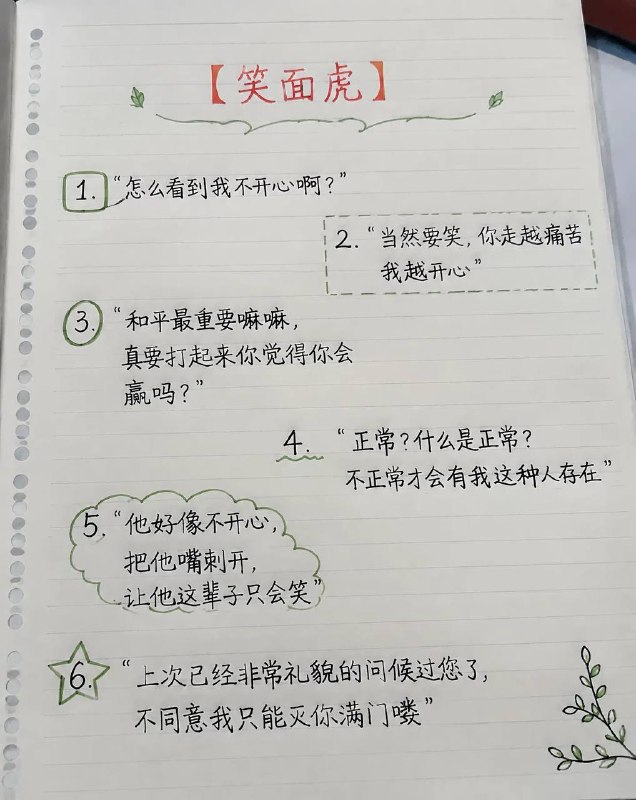 【笑面虎】
1. “怎么看到我不开心啊？”
2. “当然要笑，你走越痛苦
我越开心”
3. “和平最重要嘛嘛，
真要打起来你觉得你会
赢吗？”
4. “正常？什么是正常？
不正常才会有我这种人存在”
5. “他好像不开心，
把他嘴刺开，
让他这辈子只会笑”
6. “上次已经非常礼貌的问候过您了，
不同意我只能灭你满门喽”